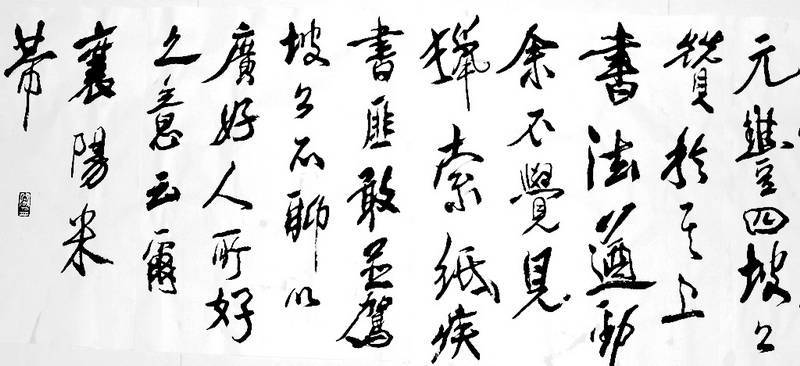 元豐四坡公
贊於其上
書法遒勁
余不覺見
獵索紙疾
書匪敢並駕
坡公不聊以
廣好人所好
之意云爾
襄陽米
芾